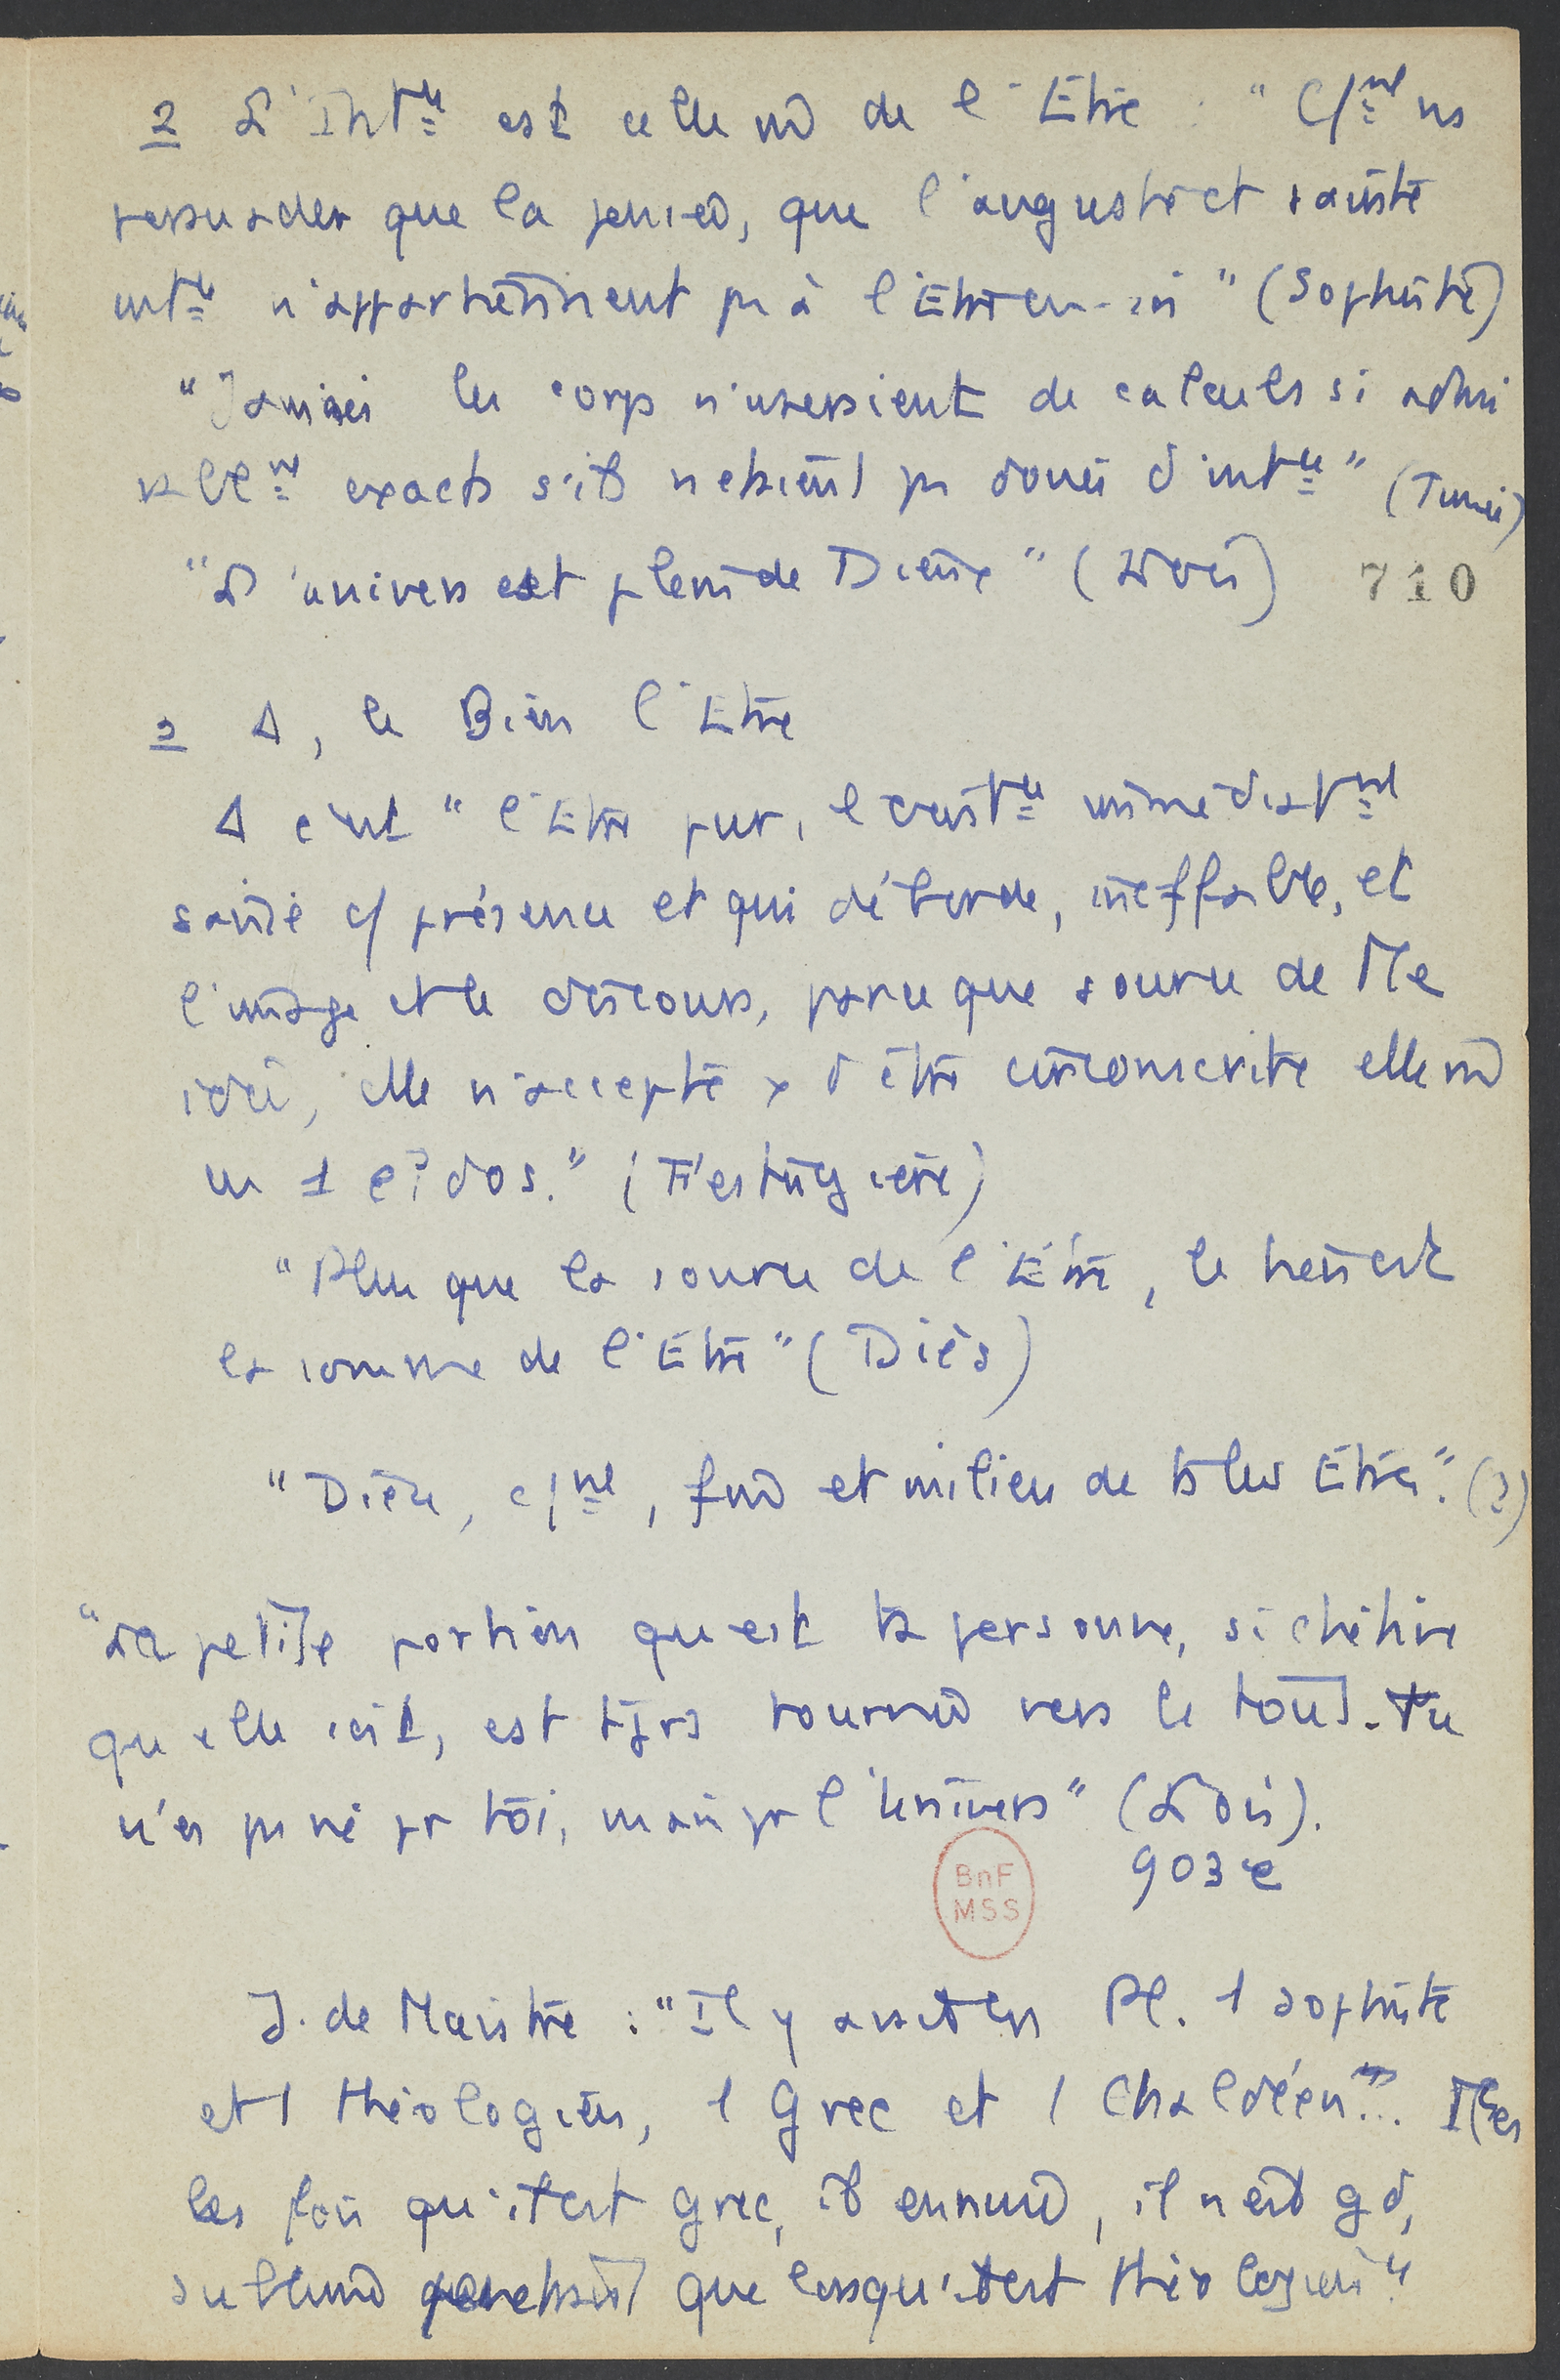 2 L'Int^ce est celle md de l'Etre : "C/^nt ns
persuader que la pensée, que l'auguste et sainte
int^ce n'appartiennent pas à l'Etre en-soi" (Sophiste)
"Jamais les corps n'useraient de calculs si admi
rabl^nt exacts s'ils n'étaient pas doués d'int^ce" (Timée)
"L'univers est plein de Dieux" (Lois) 710
3 Δ, le Bien l'Etre
Δ c'est "l'Etre pur, l'exist^ce immédiat^nt
saisie c/ présence et qui déborde, ineffable, et
l'image et le discours, parce que source de tte
idée, elle n'accepte x d'être circonscrite elle md
en 1 eidos." (Festugière)
"Plus que la source de l'Etre, le bien est
la somme de l'Etre" (Diès)
"Dieu, c/^nt, fin et milieu de ts les Etres". (?)
"La petite portion qu'est ta personne, si chétive
qu'elle soit, est tjrs tournée vers le tout. Tu
n'es pas né pr toi, mais pr l'Univers" (Lois).
903 c
BnF
MSS
J. de Maistre : "Il y avait ds Pl. 1 sophiste
et 1 théologien, 1 Grec et 1 Chaldéen...
les fois qu'il est grec, il ennuie, il n'est gd,
sublime que lorsqu'il est théologien".